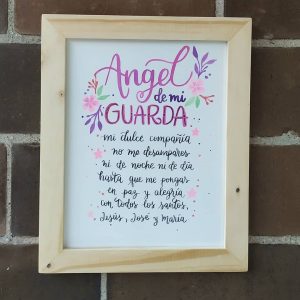 Angel
de mi
GUARDA
mi dulce compañía
no me desampares
ni de noche ni de día
hasta que me pongas
en paz y alegría
con todos los santos,
Jesús, José y María